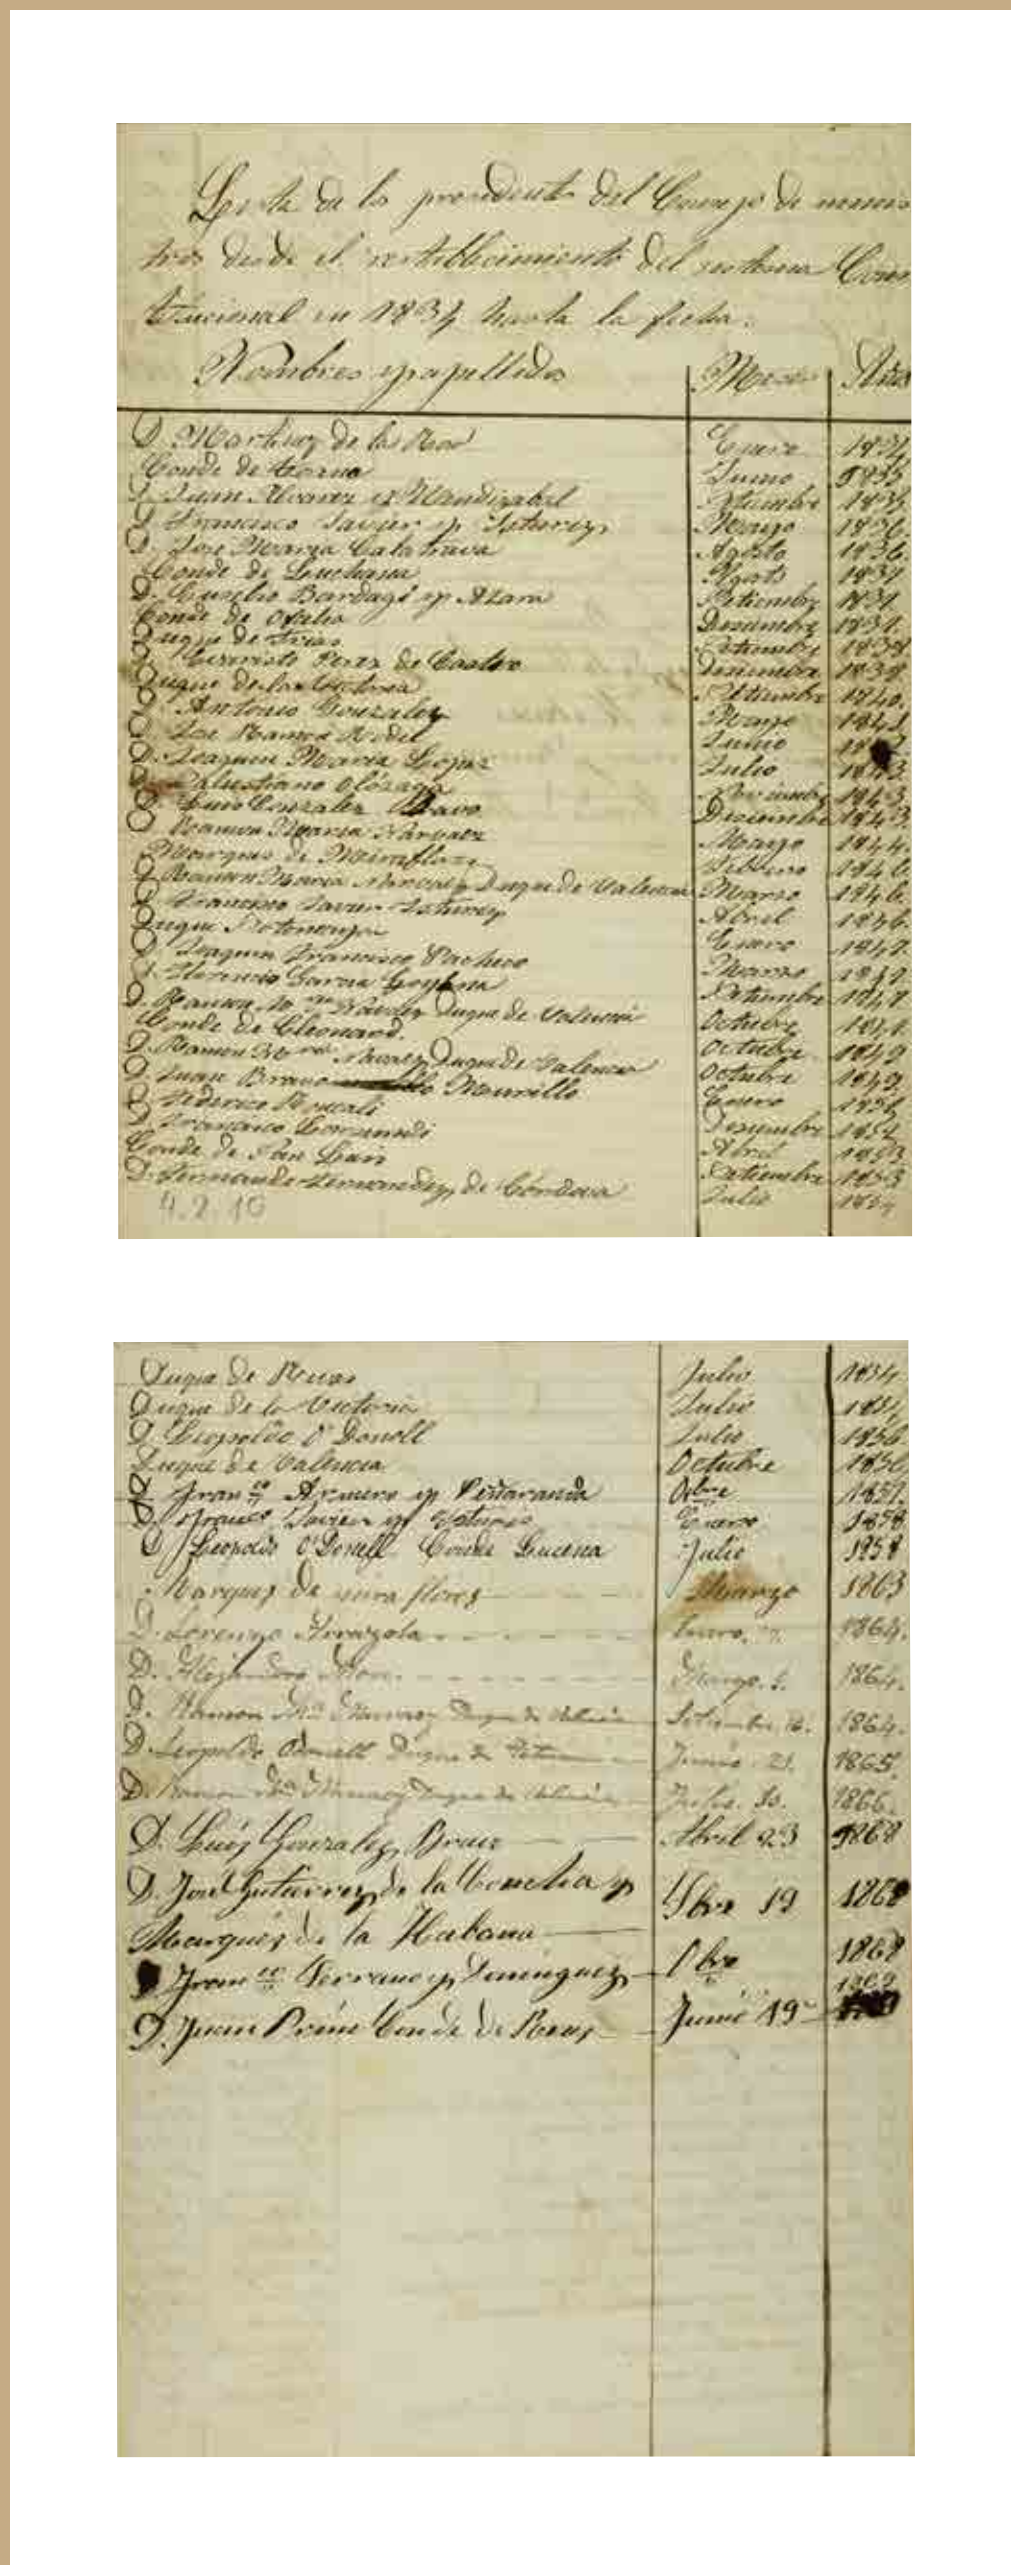 Lista de los presidentes del Consejo de minis
tros desde el restablecimiento del sistema Cons
titucional en 1834 hasta la fecha.
Nombres y apellidos Meses Años
D. Martinez de la Rosa Enero 1834
Conde de toreno Junio 1835
D. Juan Alvarez y Mendizabal Setiembre 1835
D. Francisco Javier y Isturiz Mayo 1836
D. Jose Maria Calatrava Agosto 1836
Conde de Luchana Agosto 1837
D. Eusebio Bardaji y Azara Setiembre 1837
Conde de Ofalia Diciembre 1837
Duque de Frias Setiembre 1838
D. Evaristo Perez de Castro Diciembre 1838
Duque de la Victoria Setiembre 1840
D. Antonio Gonzalez Mayo 1841
D. Jose Ramon Rodil Junio
D. Joaquin Maria Lopez Julio 1843
D. Salustiano Olózaga Noviembre 1843
D. Luis Gonzalez Bravo Diciembre 1843
D. Ramon Maria Narvaez Mayo 1844
Marques de Miraflores Febrero 1846
D. Ramon Maria Narvaez Duque de Valencia Marzo 1846
D. Francisco Javier Isturiz Abril 1846
Duque Sotomayor Enero 1847
D. Joaquin Francisco Pacheco Marzo 1847
D. Florencio Garcia Goyena Setiembre 1847
D. Ramon Narvaez Duque de Valencia Octubre 1847
Conde de Cleonard Octubre 1849
D. Ramon Narvaez Duque de Valencia Octubre 1849
D. Juan Bravo Murillo Enero 1851
D. Federico Roncali Diciembre 1852
D. Francisco Lersundi Abril 1853
Conde de San Luis Setiembre 1853
D. Fernando Fernandez de Córdova Julio 1854
4.2.10
Duque de Rivas Julio 1854
Duque de la Victoria Julio 1854
D. Leopoldo O'Donell Julio 1856
Duque de Valencia Octubre 1856
D. Fran co Armero y Peñaranda Obre 1857
D. Franco Javier y Isturiz Enero 1858
D. Leopoldo O'Donell Conde Lucena Julio 1858
Marques de mira flores Marzo 1863
D. Lorenzo Arrazola Enero. 1864.
D. Alejandro Mon. Marzo. 1. 1864.
D. Ramon Ma Narvaez Duque de Valencia Setiembre 16. 1864.
D. Leopoldo Odonell Duque de Tetuan Junio 21. 1865.
D. Ramon Ma Narvaez Duque de Valencia Julio. 10. 1866.
D. Luis Gonzalez Bravo Abril 23 1868
D. José Gutierrez de la Concha y
Marqués de la Habana 9bre 19 1868
D. Fran co Serrano y Dominguez 8bre 1868
D. Juan Prim Conde de Reus Junio 19 1869